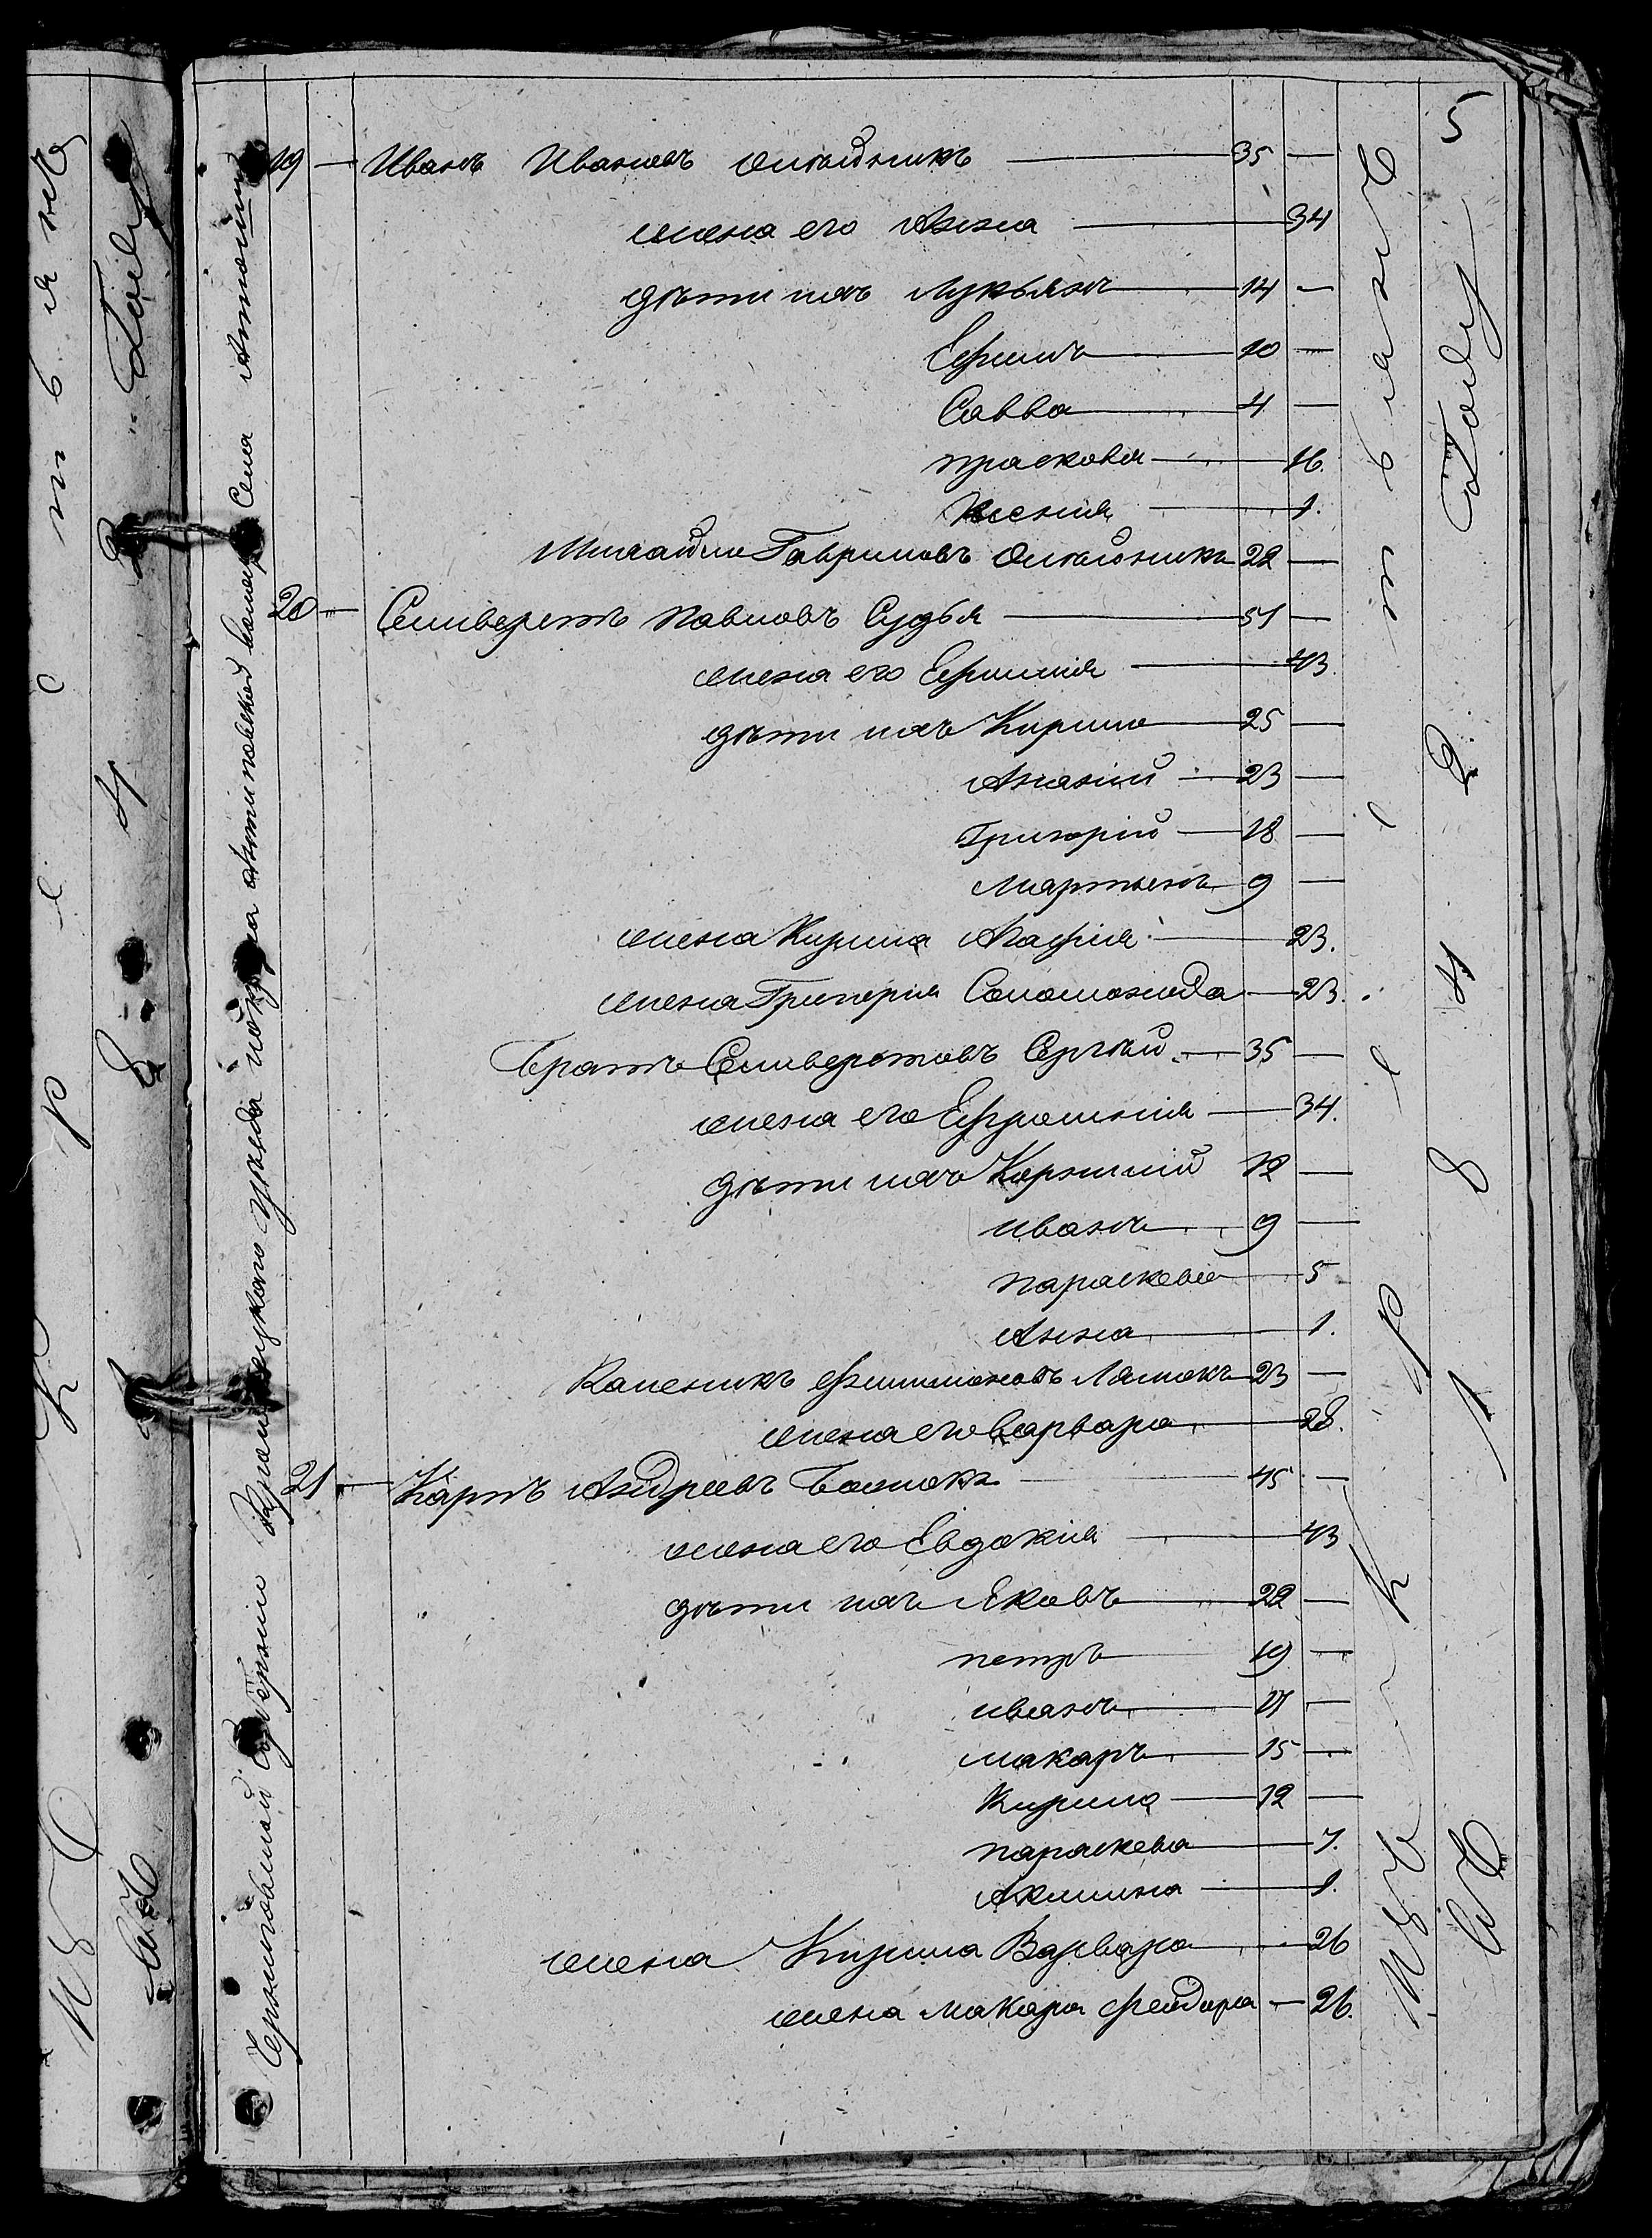 5
19 — Иванъ Ивановъ Олѣйникъ — 35 —
жена его Анна — 34
дѣти ихъ Лукьянъ — 14 —
Ефимъ — 10 —
Савва — 4 —
Прасковья — 16.
Ксенія — 1.
Михайло Гавриловъ Олѣйникъ 22 —
20 — Селиверстъ Павловъ Судья — 51 —
жена его Ефимія — 43.
дѣти ихъ Кирило — 25 —
Ананій — 23 —
Григорій — 18 —
Мартынъ 9 —
жена Кирила Агафія — 23.
жена Григорія Соломонида — 23.
Братъ Селиверстовъ Сергѣй — 35 —
жена его Ефросинія — 34.
дѣти ихъ Корнилій 12 —
Иванъ 9 —
Параскева 5
Анна 1.
Каленикъ Филимоновъ 23 —
жена его Варвара 28.
21 — Карпъ Андреевъ — 45 —
жена его Евдокія — 43
дѣти ихъ Яковъ 22 —
Петръ 19 —
Иванъ 17 —
Макаръ 15 —
Кирило — 12 —
Параскева 7.
Акилина 1.
жена Кирила Варвара — 26
жена Макара Феодора — 26.
Черниговской Губерніи уѣзда волости Села
Изъ крестьянъ
Въ 1842 Году